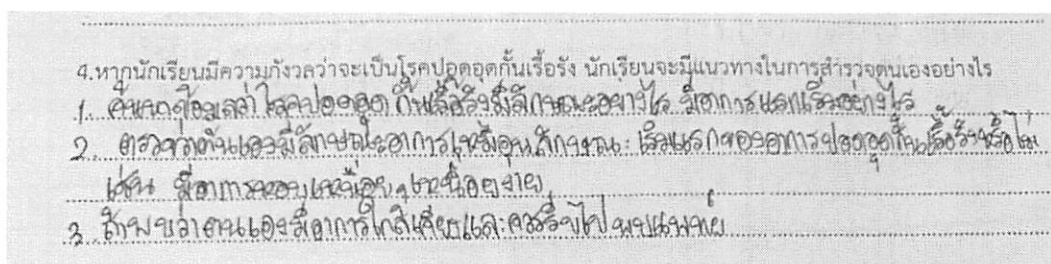 4.หากนักเรียนมีความกังวลว่าจะเป็นโรคปอดอุดกั้นเรื้อรัง นักเรียนจะมีแนวทางในการสำรวจตนเองอย่างไร
1. ค้นหาข้อมูลว่าโรคปอดอุดกั้นเรื้อรังมีลักษณะอย่างไร มีอาการแรกเริ่มอย่างไร
2. ตรวจว่าตนเองมีลักษณะอาการเหมือนลักษณะเริ่มแรกของอาการปอดอุดกั้นเรื้อรังหรือไม่
เช่น มีอาการหอบเหนื่อย, เหนื่อยง่าย
3 ถ้าพบว่าตนเองมีอาการใกล้เคียงและควรรีบไปพบแพทย์